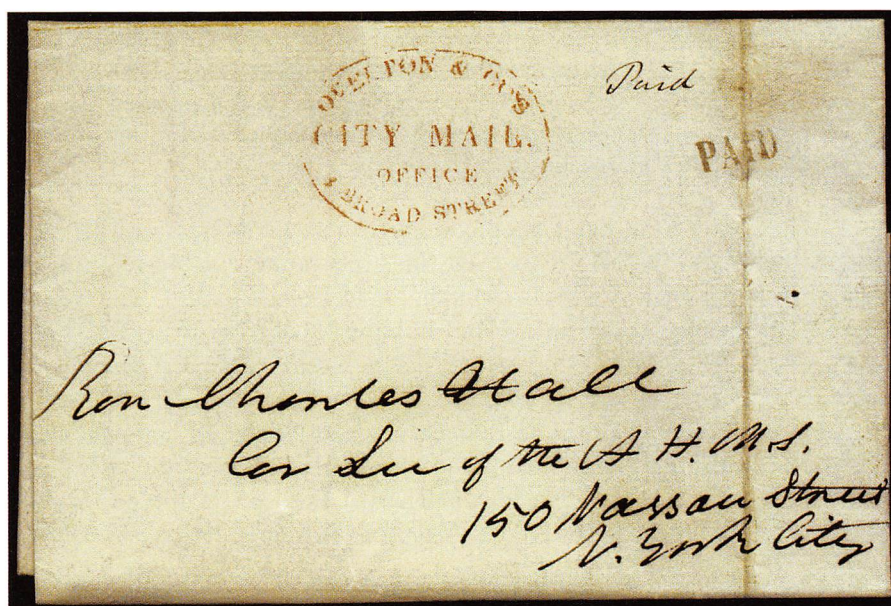 OVERTON & CO'S
CITY MAIL.
OFFICE
BROAD STREET
Paid
PAID
Rev Charles Hall
Cor Sec of the A. H. M. S.
150 Nassau Street
N. York City